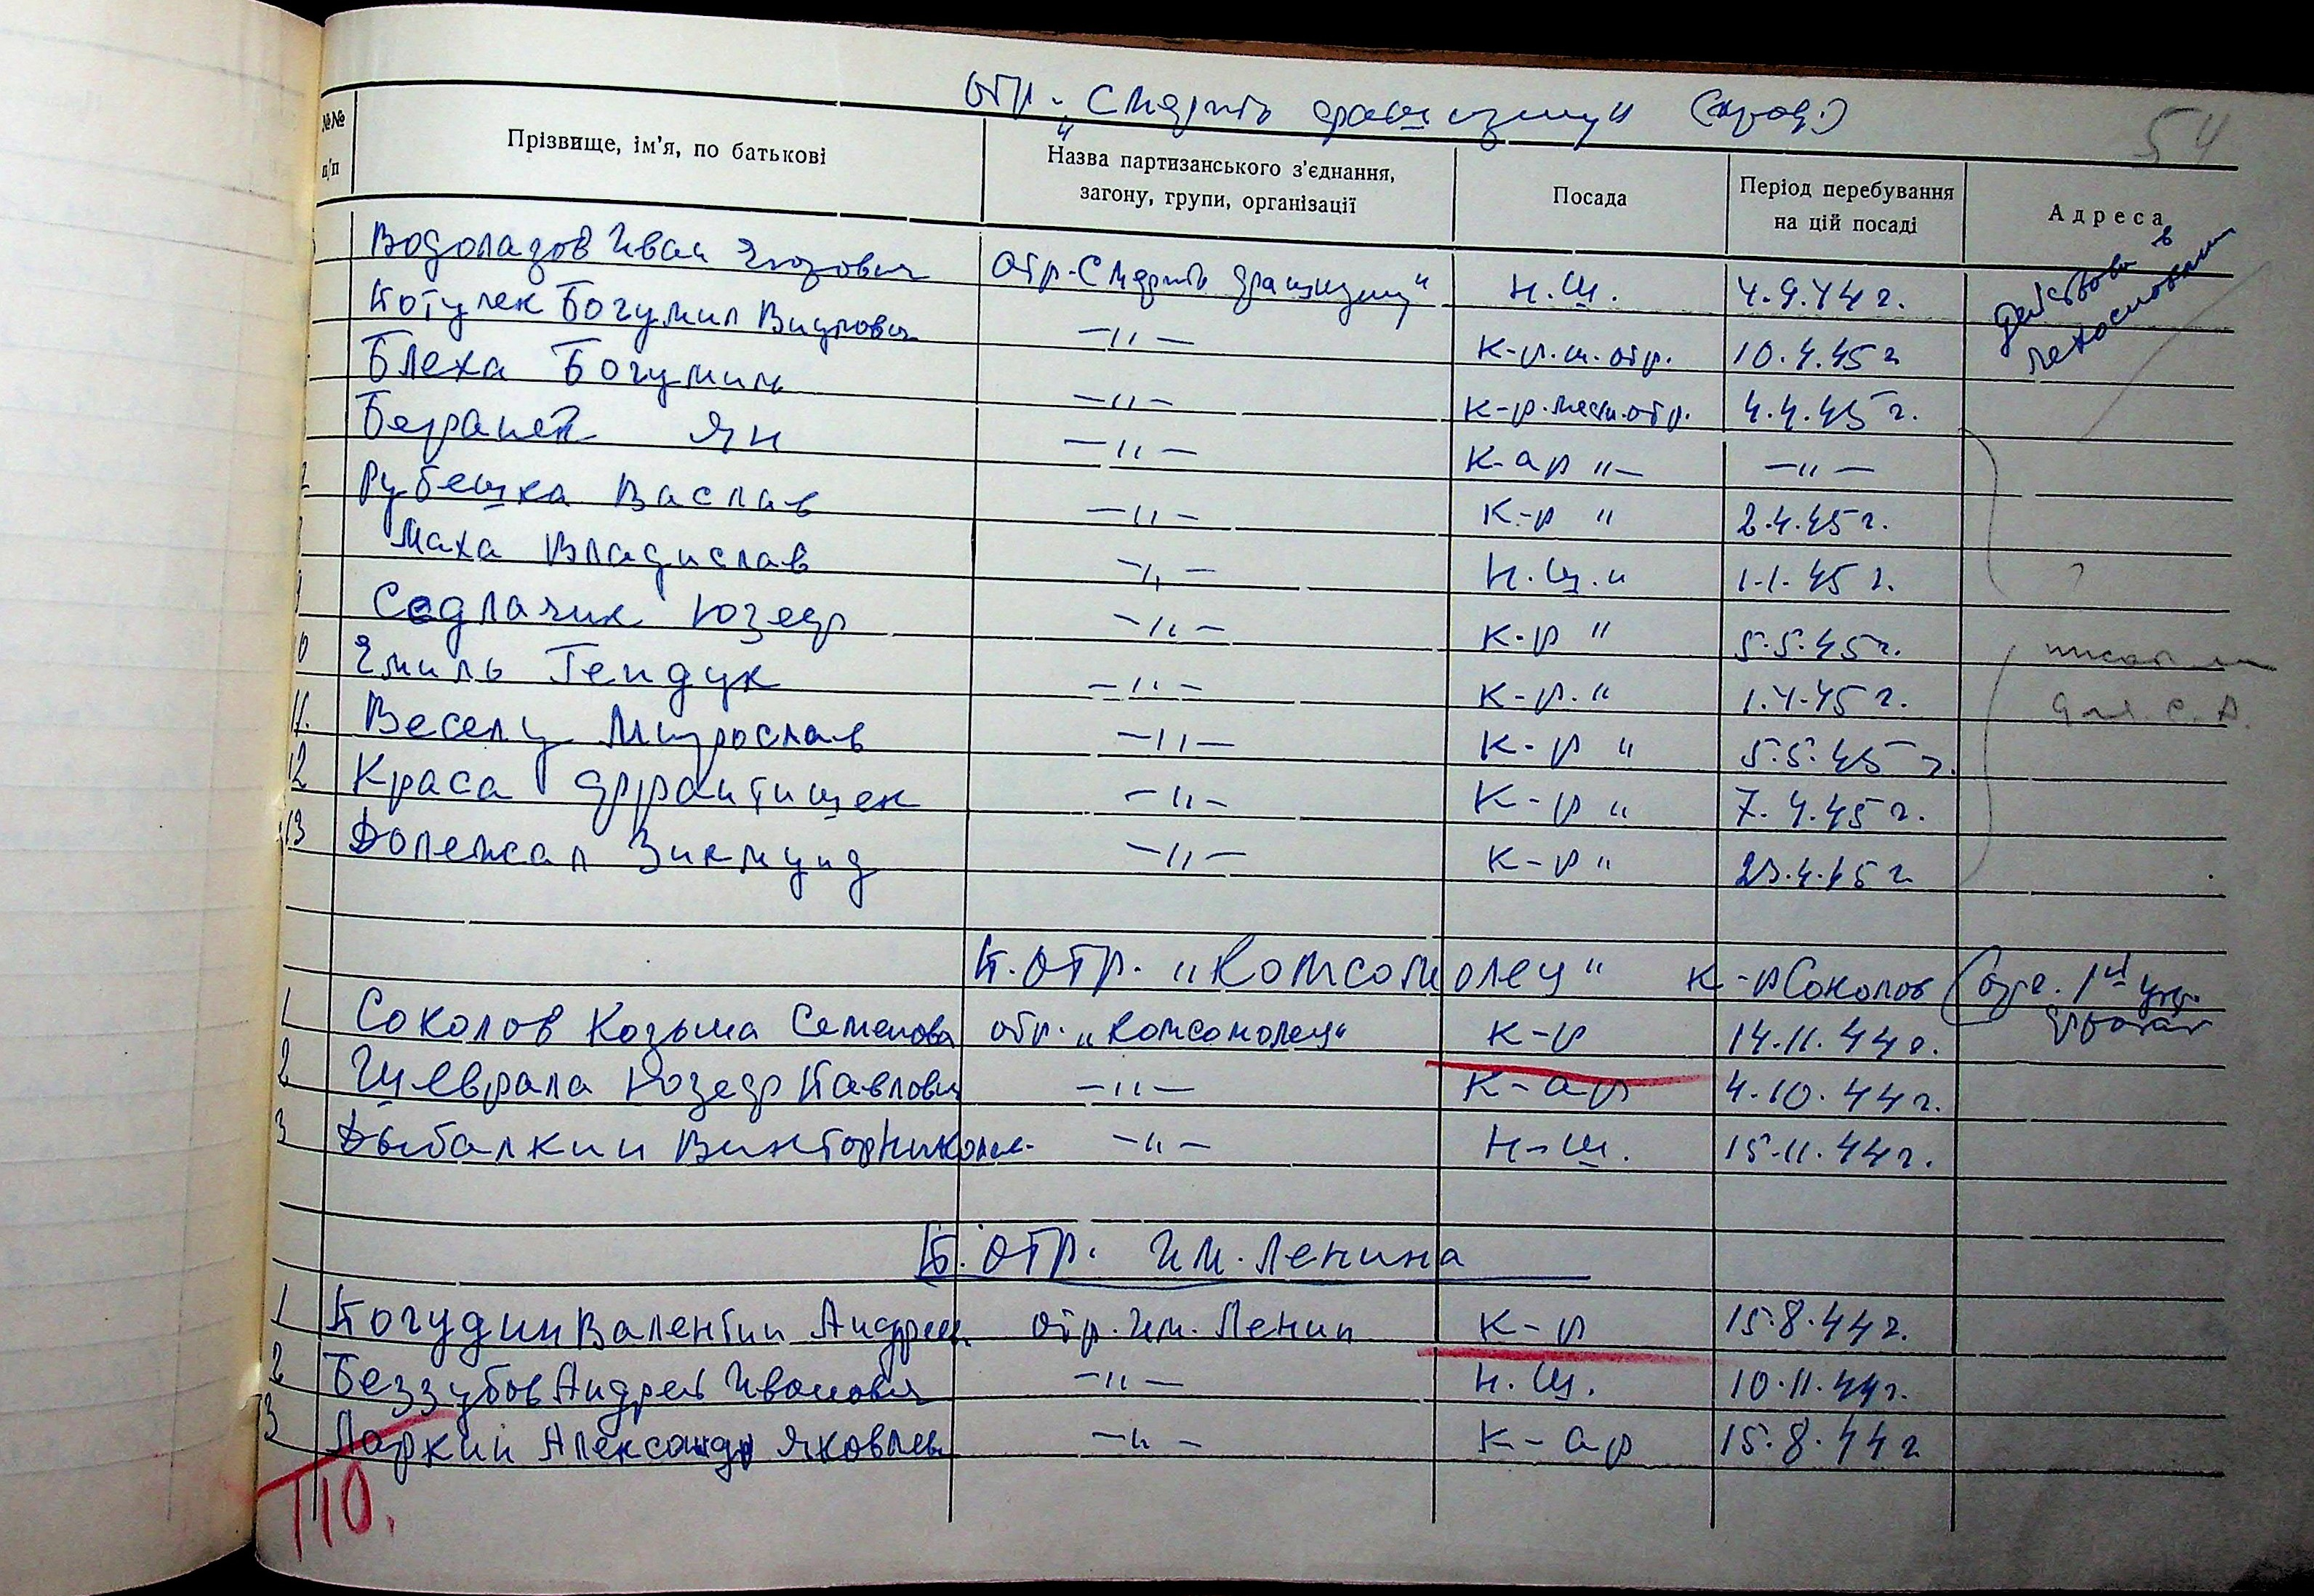 отр. „Смерть фашизму“ (прод.)
54
№№ п/п
Прізвище, ім'я, по батькові
Назва партизанського з'єднання, загону, групи, організації
Посада
Період перебування на цій посаді
Адреса
действов. в
Чехословакии
Водолазов Иван отр. Смерть фашизму“ Н.Ш. 4.9.44 г.
Котулек Богумил —„— к-р.ш.отр. 10.4.45 г
Блеха Богумил —„— к-р.шест.отр. 4.4.45 г.
Ян —„— К-ар „— —„—
Рубешка Васлав —„— К-р „ 2.4.45 г.
Маха Владислав —„— Н.Ш. „ 1.1.45 г.
Седлачик Юзеф —„— К-р „ 5.5.45 г.
10 Емиль Гендук —„— К-р. „ 1.4.45 г.
11. Веселы Мирослав —„— К-р „ 5.5.45 г.
12 Краса Франтишек —„— К-р „ 7.4.45 г.
13 Долежал Зикмунд —„— К-р „ 23.4.45 г
П.отр. „Комсомолец“ К-р Соколов
1 Соколов Козьма Семенова отр. „Комсомолец“ К-р 14.11.44 г.
2 Юзеф Павлович —„— К-ар 4.10.44 г.
3 Дыбалкин Виктор Никола. —„— Н-ш. 15.11.44 г.
П. отр. им. Ленина
1 Погудин Валентин Андреев отр. им. Ленин К-р 15.8.44 г.
2 Беззубов Андрей Иванович —„— Н.Ш. 10.11.44 г.
3 Ларкин Александр Яковлев —„— К-ар 15.8.44 г
110.